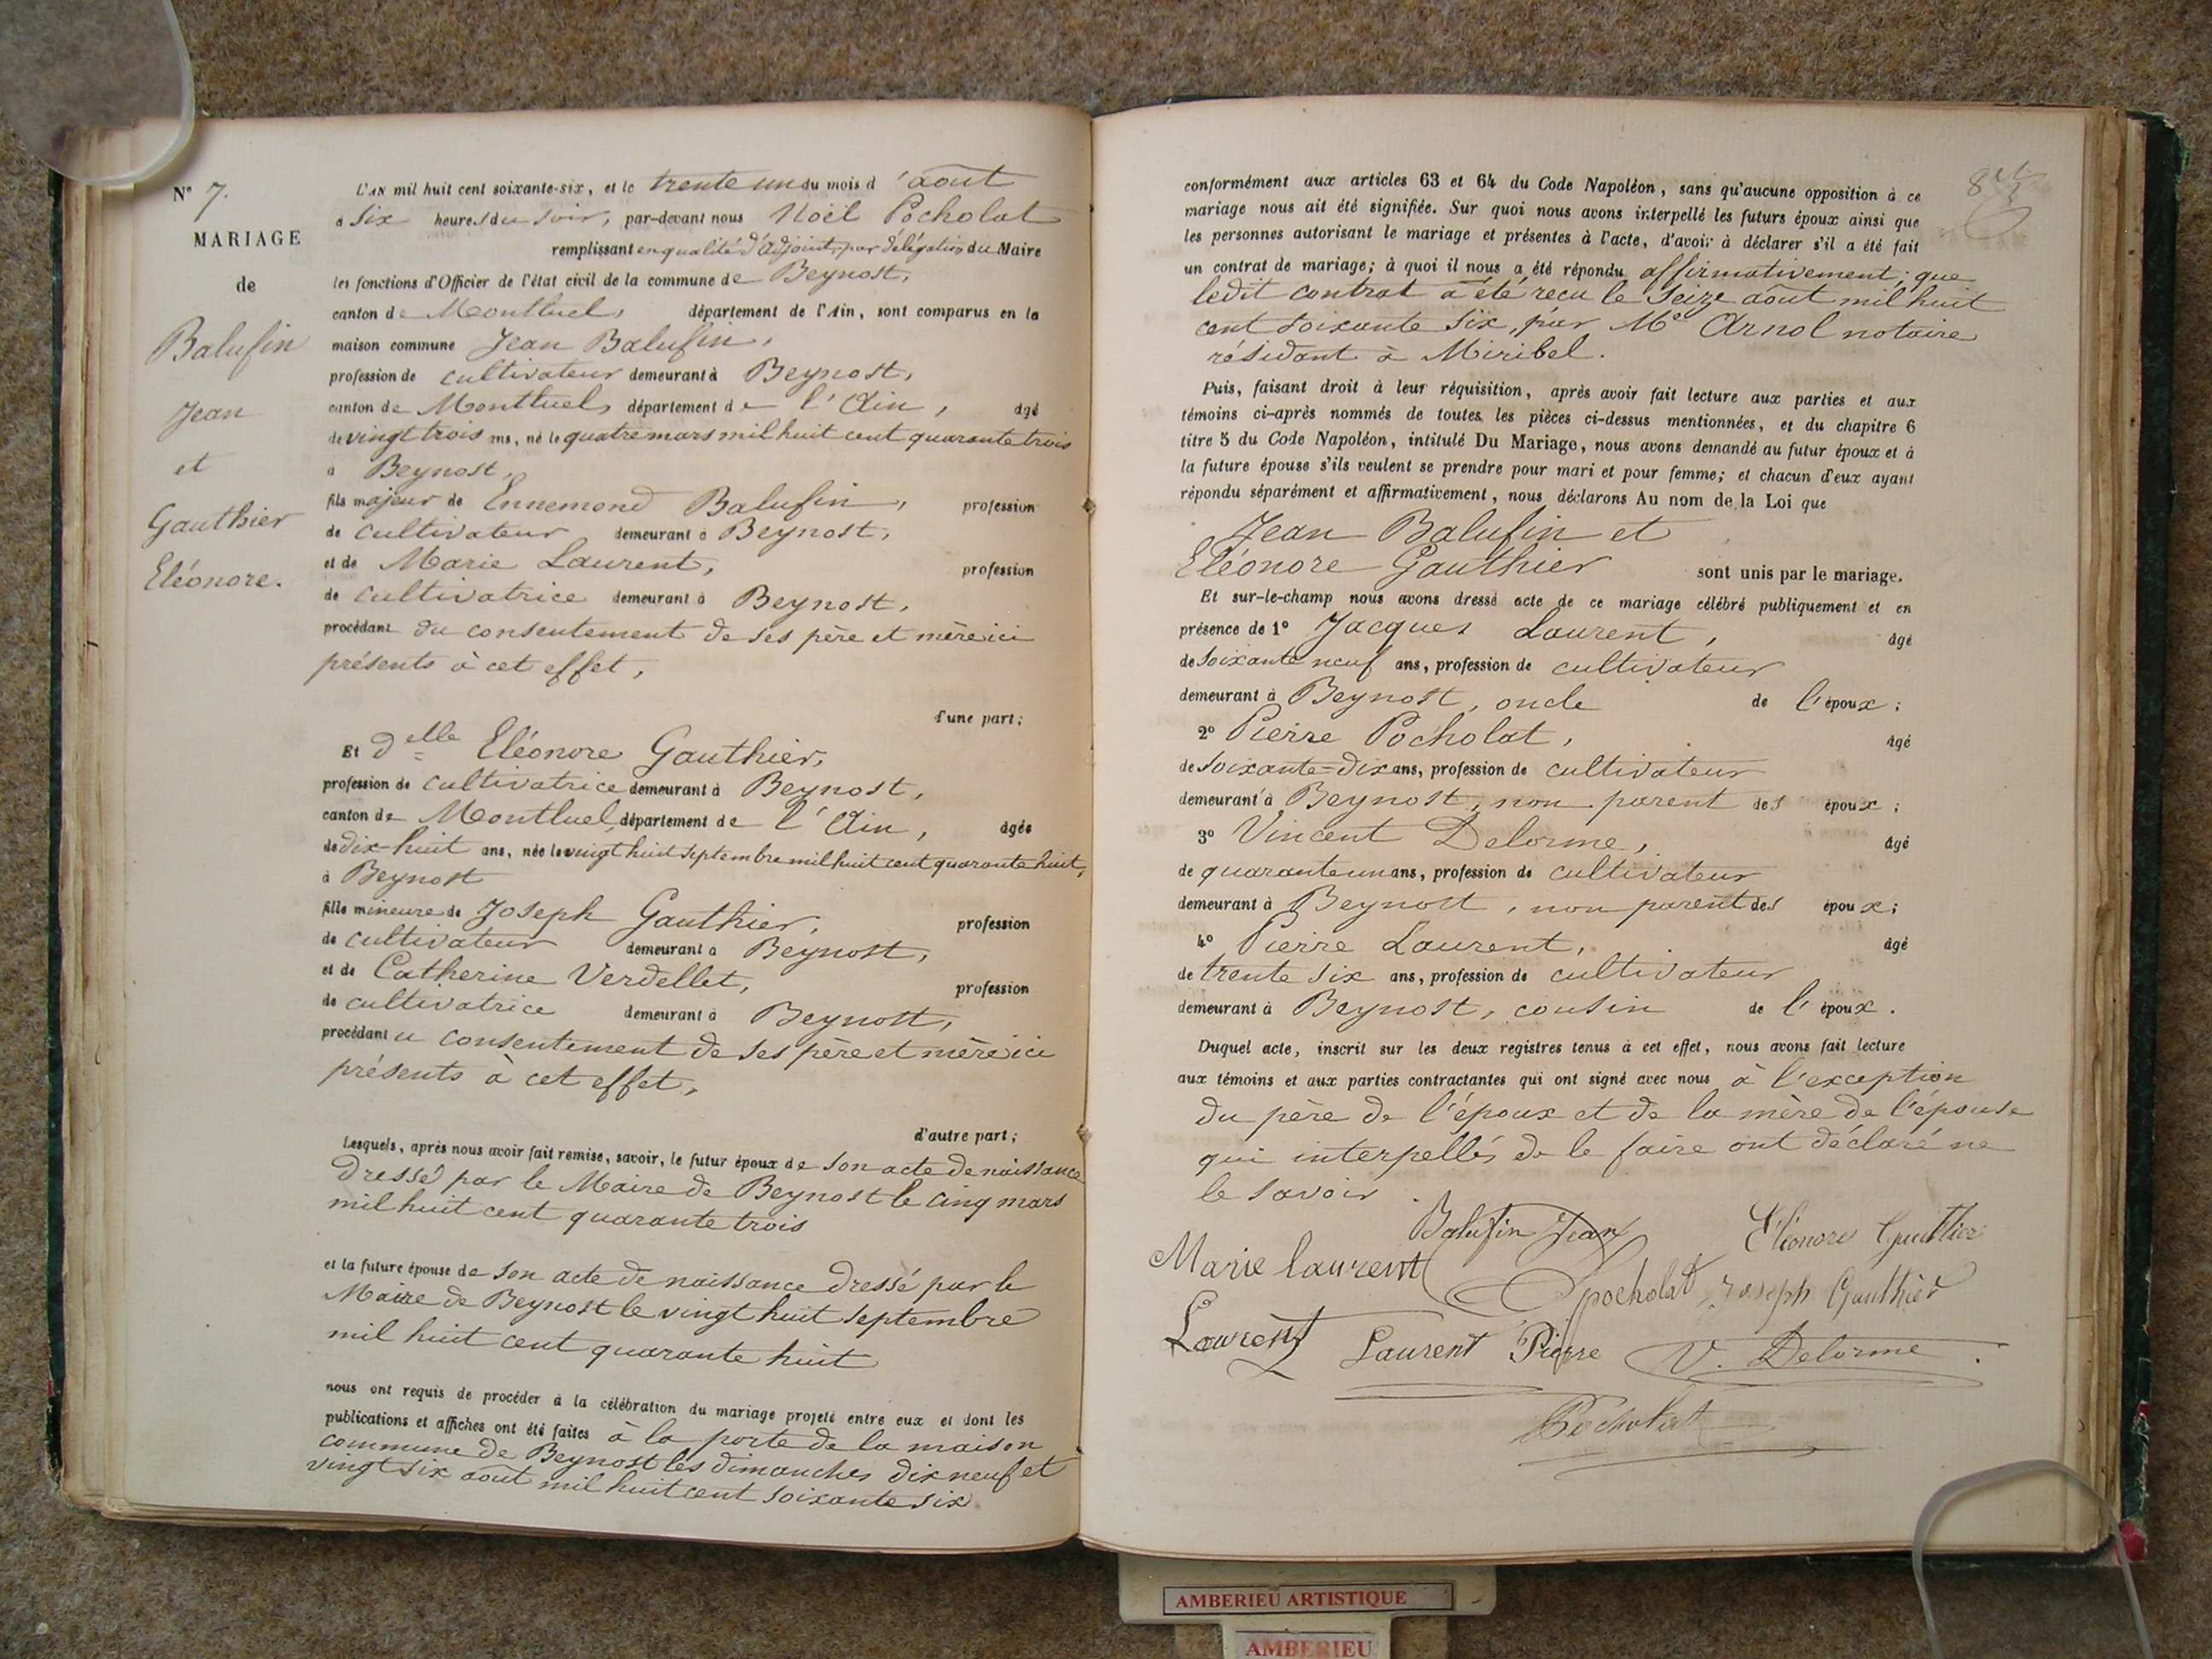 N° 7.
MARIAGE
de
Balufin
Jean
et
Gauthier
Eléonore.
L'AN mil huit cent soixante-six, et le trente un du mois d'août
à six heures du soir, par-devant nous Noël Pocholat
remplissant en qualité d'adjoint, par délégation du Maire
les fonctions d'Officier de l'état civil de la commune de Beynost,
canton de Montluel, département de l'Ain, sont comparus en la
maison commune Jean Balufin,
profession de cultivateur demeurant à Beynost,
canton de Montluel, département de l'Ain, âgé
de vingt trois ans, né le quatre mars mil huit cent quarante trois
à Beynost,
fils majeur de Ennemond Balufin, profession
de cultivateur demeurant à Beynost,
et de Marie Laurent, profession
de cultivatrice demeurant à Beynost,
procédant du consentement de ses père et mère ici
présents à cet effet,
d'une part;
Et delle Eléonore Gauthier,
profession de cultivatrice demeurant à Beynost,
canton de Montluel, département de l'Ain, âgée
de dix-huit ans, née le vingt huit septembre mil huit cent quarante huit,
à Beynost
fille mineure de Joseph Gauthier, profession
de cultivateur demeurant à Beynost,
et de Catherine Verdellet, profession
de cultivatrice demeurant à Beynost,
procédant u consentement de ses père et mère ici
présents à cet effet,
d'autre part;
Lesquels, après nous avoir fait remise, savoir, le futur époux de son acte de naissance
dressé par le Maire de Beynost le cinq mars
mil huit cent quarante trois
et la future épouse de son acte de naissance dressé par le
Maire de Beynost le vingt huit septembre
mil huit cent quarante huit
nous ont requis de procéder à la célébration du mariage projeté entre eux et dont les
publications et affiches ont été faites à la porte de la maison
commune de Beynost les dimanches dix neuf et
vingt six août mil huit cent soixante six
conformément aux articles 63 et 64 du Code Napoléon, sans qu'aucune opposition à ce
mariage nous ait été signifiée. Sur quoi nous avons interpellé les futurs époux ainsi que
les personnes autorisant le mariage et présentes à l'acte, d'avoir à déclarer s'il a été fait
un contrat de mariage; à quoi il nous a été répondu affirmativement; que
ledit contrat a été reçu le seize août mil huit
cent soixante six, par Me Arnol notaire
résidant à Miribel.
Puis, faisant droit à leur réquisition, après avoir fait lecture aux parties et aux
témoins ci-après nommés de toutes les pièces ci-dessus mentionnées, et du chapitre 6
titre 5 du Code Napoléon, intitulé Du Mariage, nous avons demandé au futur époux et à
la future épouse s'ils veulent se prendre pour mari et pour femme; et chacun d'eux ayant
répondu séparément et affirmativement, nous déclarons Au nom de la Loi que
Jean Balufin et
Eléonore Gauthier sont unis par le mariage.
Et sur-le-champ nous avons dressé acte de ce mariage célébré publiquement et en
présence de 1° Jacques Laurent, âgé
de soixante neuf ans, profession de cultivateur
demeurant à Beynost, oncle de l'époux;
2° Pierre Pocholat, âgé
de soixante=dix ans, profession de cultivateur
demeurant à Beynost, non parent des époux;
3° Vincent Delorme, âgé
de quarante un ans, profession de cultivateur
demeurant à Beynost, non parent des époux;
4° Pierre Laurent, âgé
de trente six ans, profession de cultivateur
demeurant à Beynost, cousin de l'époux.
Duquel acte, inscrit sur les deux registres tenus à cet effet, nous avons fait lecture
aux témoins et aux parties contractantes qui ont signé avec nous à l'exception
du père de l'époux et de la mère de l'épouse
qui interpellés de le faire ont déclaré ne
le savoir.
Balufin Jean Eléonore Gauthier
Marie laurent pocholat Joseph Gauthier
Laurent Laurent Pierre V. Delorme
Pocholat
AMBERIEU ARTISTIQUE
AMBERIEU